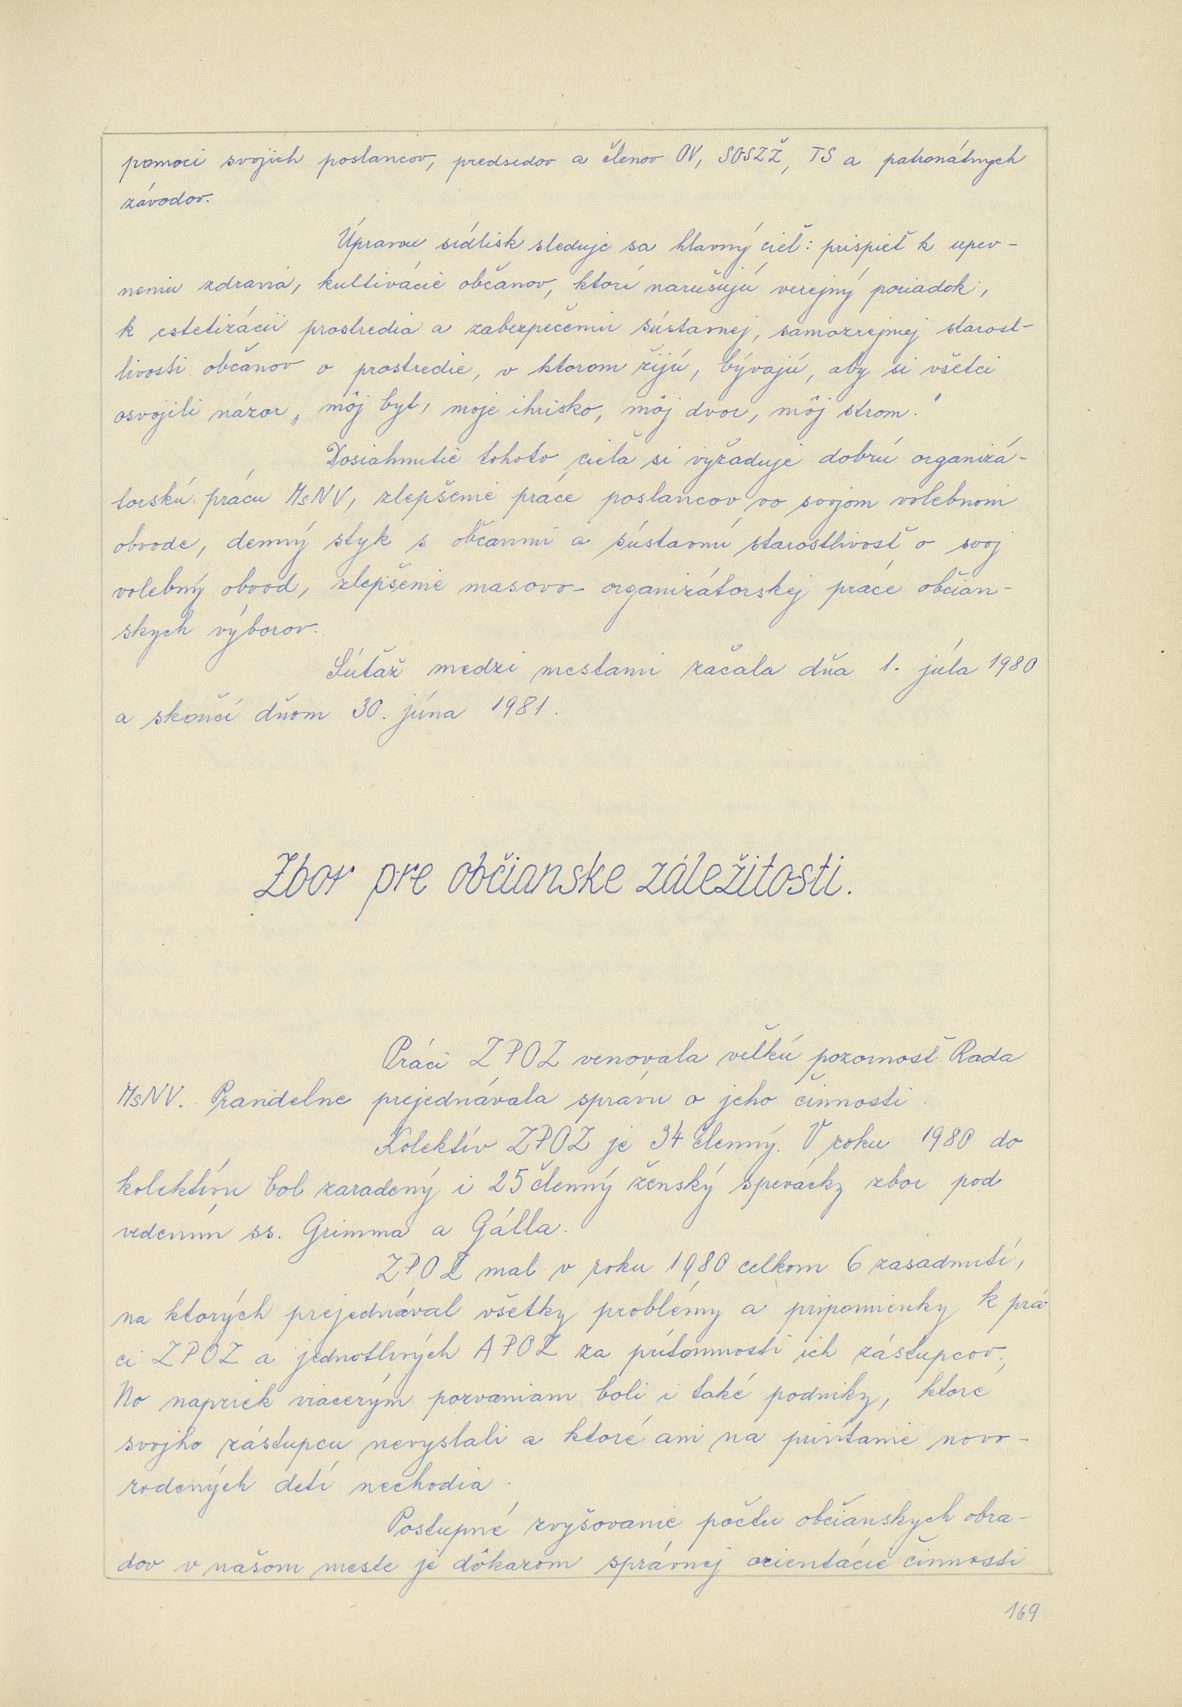 pomoci svojich poslancov, predsedov a členov OV, SOSZŽ, TS a patronátnych
závodov.
Úpravou sídlisk sleduje sa hlavný cieľ: prispieť k upev-
neniu zdravia, kultivácie občanov, ktorí narušujú verejný poriadok,
k estetizácii prostredia a zabezpečeniu sústavnej, samozrejmej starost-
livosti občanov o prostredie, v ktorom žijú, bývajú, aby si všetci
osvojili názor „môj byt, moje ihrisko, môj dvor, môj strom."
Dosiahnutie tohoto cieľa si vyžaduje dobrú organizá-
torskú prácu MsNV, zlepšenie práce poslancov vo svojom volebnom
obvode, denný styk s občanmi a sústavnú starostlivosť o svoj
volebný obvod, zlepšenie masovo-organizátorskej práce občian-
skych výborov.
Súťaž medzi mestami začala dňa 1. júla 1980
a skončí dňom 30. júna 1981.
Zbor pre občianske záležitosti.
Práci ZPOZ venovala veľkú pozornosť Rada
MsNV. Pravidelne prejednávala správu o jeho činnosti.
Kolektív ZPOZ je 34 členný. V roku 1980 do
kolektívu bol zaradený i 25 členný ženský spevácky zbor pod
vedením ss. Grimma a Gálla.
ZPOZ mal v roku 1980 celkom 6 zasadnutí,
na ktorých prejednával všetky problémy a pripomienky k prá
ci ZPOZ a jednotlivých APOZ za prítomnosti ich zástupcov.
No napriek viacerým pozvaniam boli i také podniky, ktoré
svojho zástupcu nevyslali a ktoré ani na privítanie novo-
rodených detí nechodia.
Postupné zvyšovanie počtu občianskych obra-
dov v našom meste je dôkazom správnej orientácie činnosti
169